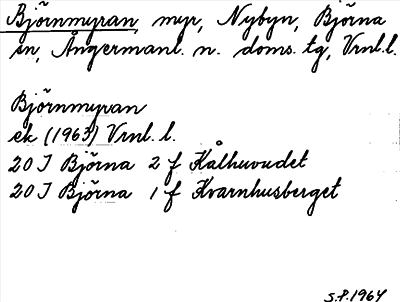 Björnmyran, myr, Nybyn, Björna
sn, Ångermanl. n. doms. tg, Vrnl.l.
Björnmyran
ek (1963) Vrnl. l.
20 J Björna 2 f Kålhuvudet
20 J Björna 1 f Kvarnhusberget
S.P.1964